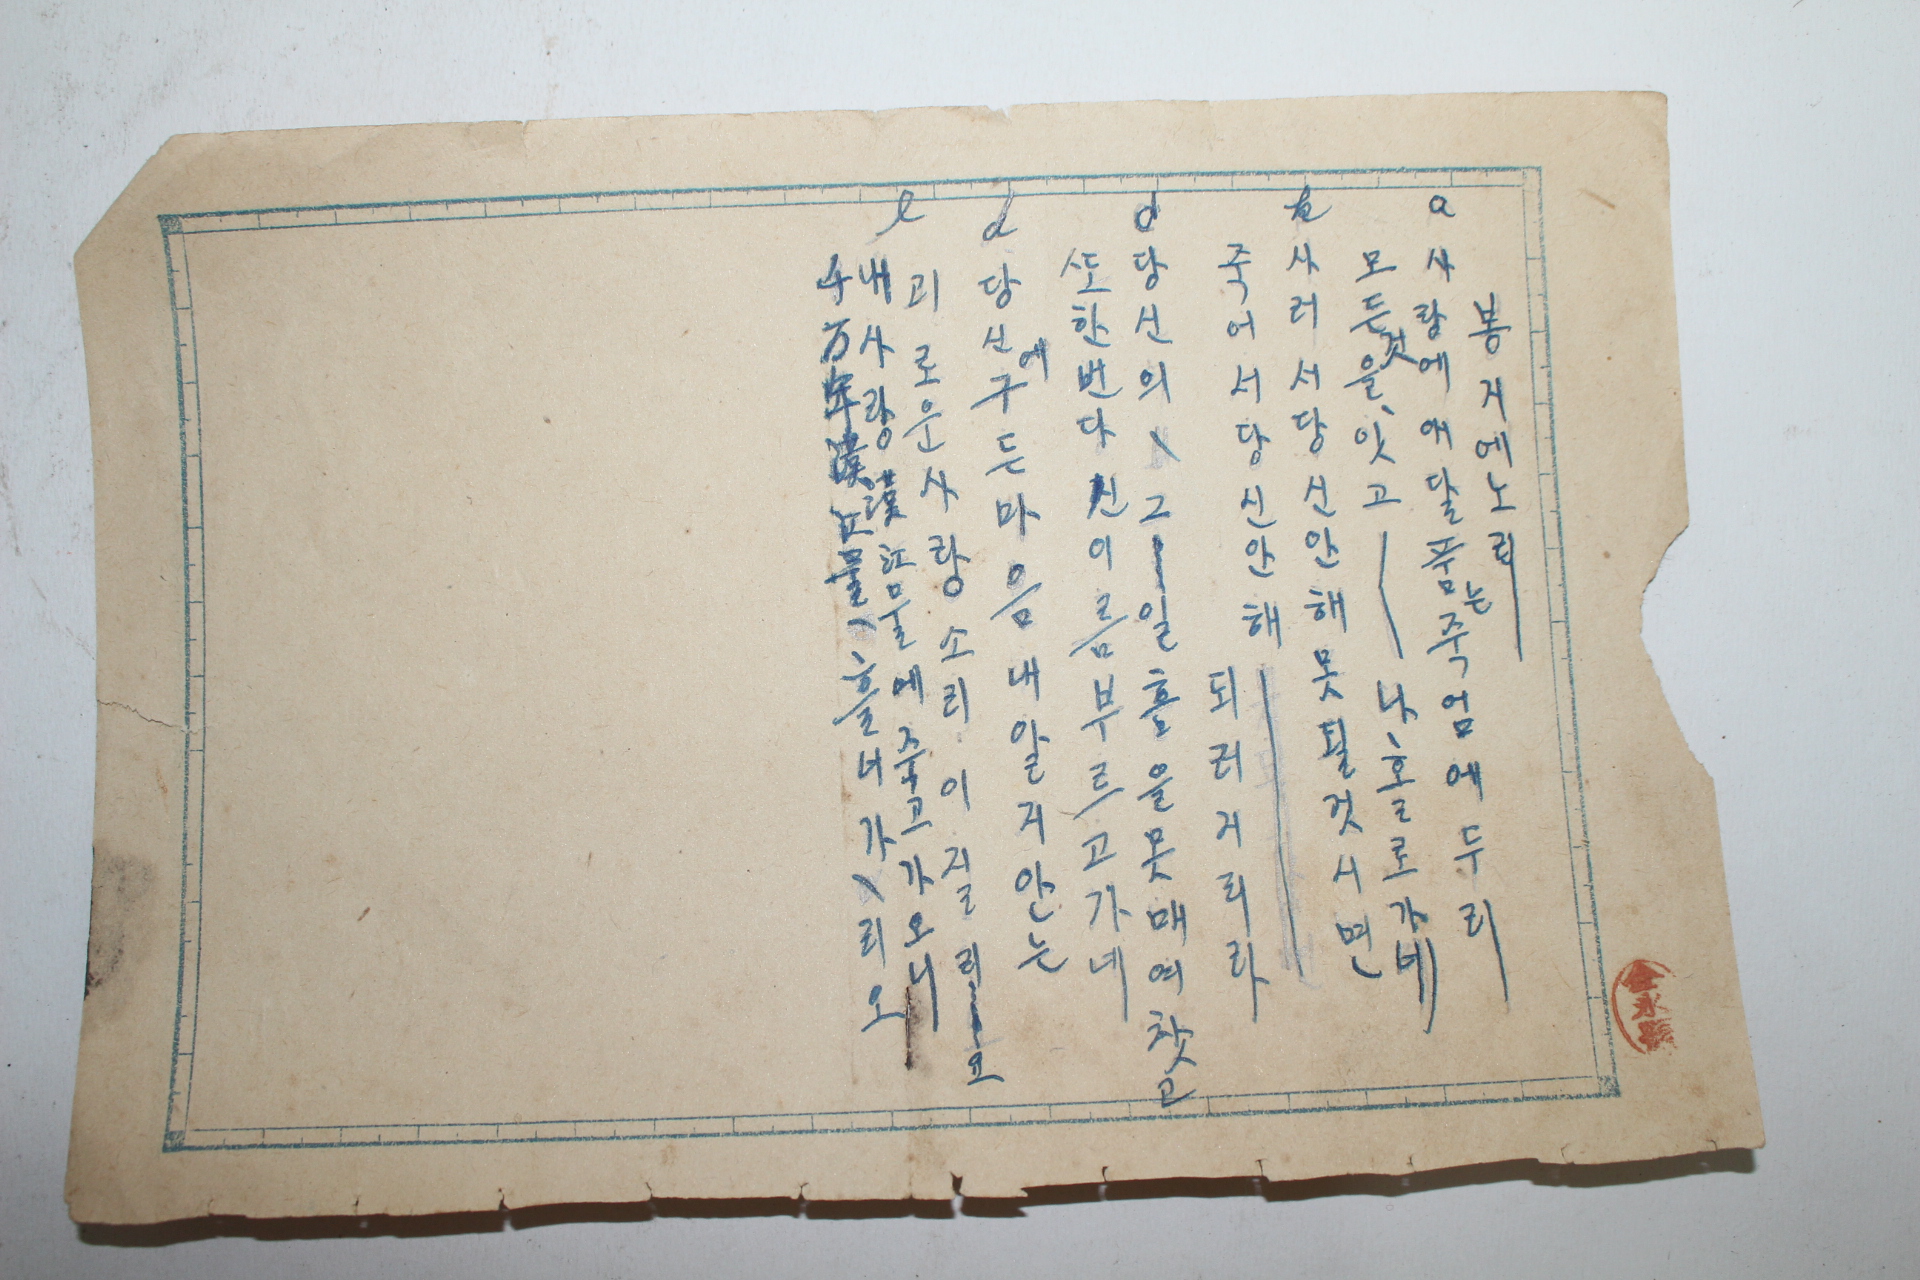 봉지에노리
a 사랑에애달품는죽엄에두리
모든것을、잇고 나、홀로가네
b 사러서당신안해못될것시면
죽어서당신안해 되러거리라
d 당신의 그 일흠을못매여찻고
또한번다신이름부르고가네
d 당신에구든마음내알지안는
괴로운사랑소리이질리고
e 내사랑漢江물에죽고가오니
千万年漢江물、흘너가리오